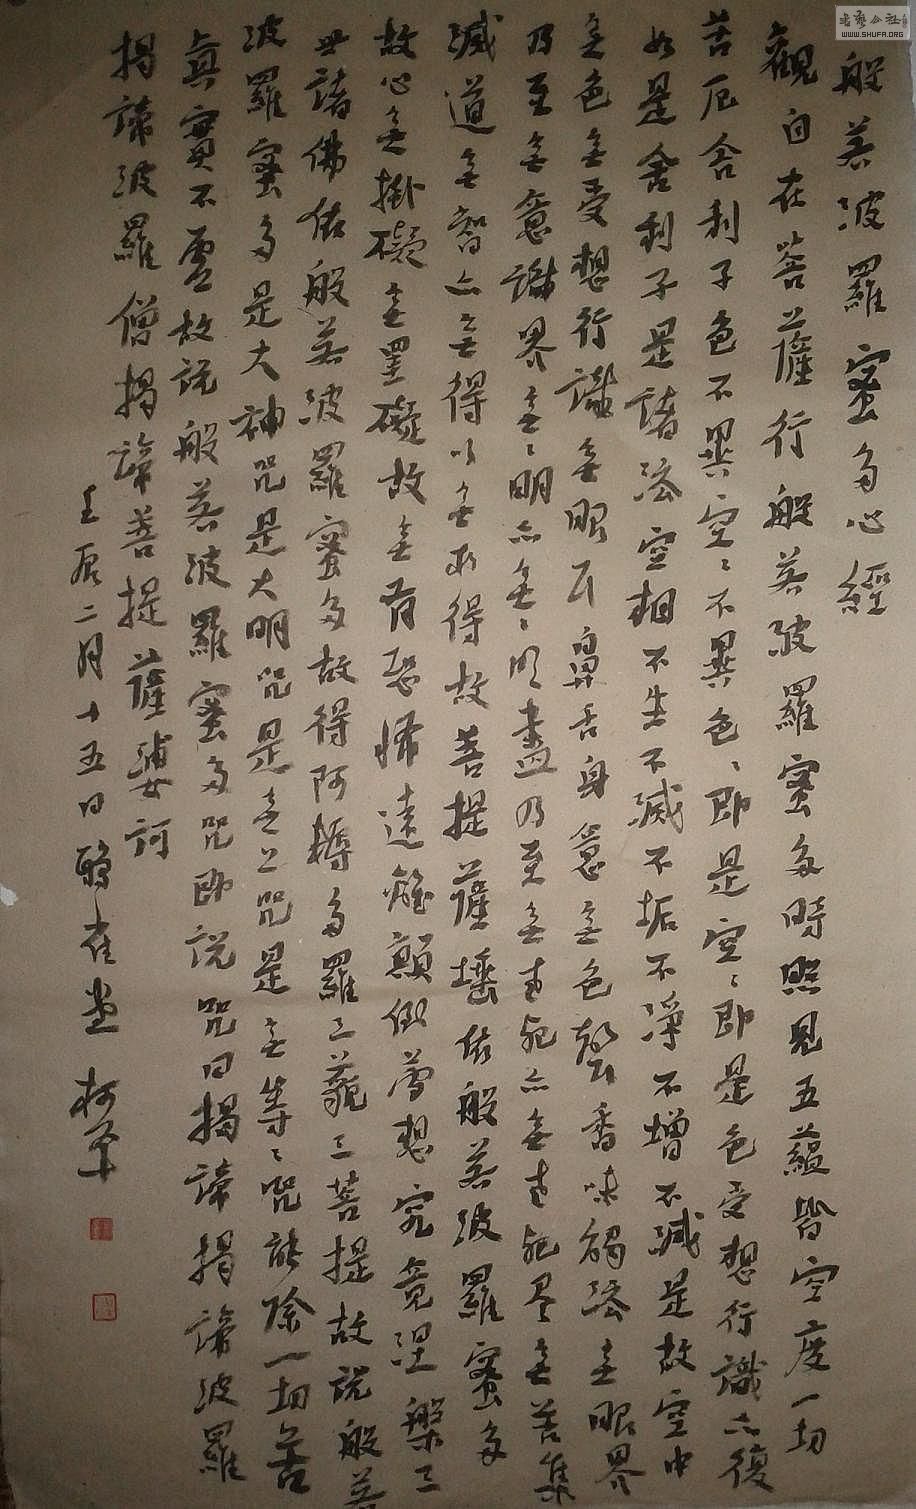 般若波羅蜜多心經
觀自在菩薩行般若波羅蜜多時照見五蘊皆空度一切
苦厄舍利子色不異空〻不異色〻即是空〻即是色受想行識亦復
如是舍利子是諸法空相不生不滅不垢不淨不增不減是故空中
無色無受想行識無眼耳鼻舌身意無色聲香味觸法無眼界
乃至無意識界無〻明亦無〻明盡乃至無老死亦無老死盡無苦集
滅道無智亦無得以無所得故菩提薩埵依般若波羅蜜多
故心無掛礙無罣礙故無有恐怖遠離顛倒夢想究竟涅槃三
世諸佛依般若波羅蜜多故得阿耨多羅三藐三菩提故說般若
波羅蜜多是大神咒是大明咒是無上咒是無等〻咒能除一切苦
真實不虛故說般若波羅蜜多咒即說咒曰揭諦揭諦波羅
揭諦波羅僧揭諦菩提薩婆訶
壬辰二月十五日
書藝公社
WWW.SHUFA.ORG